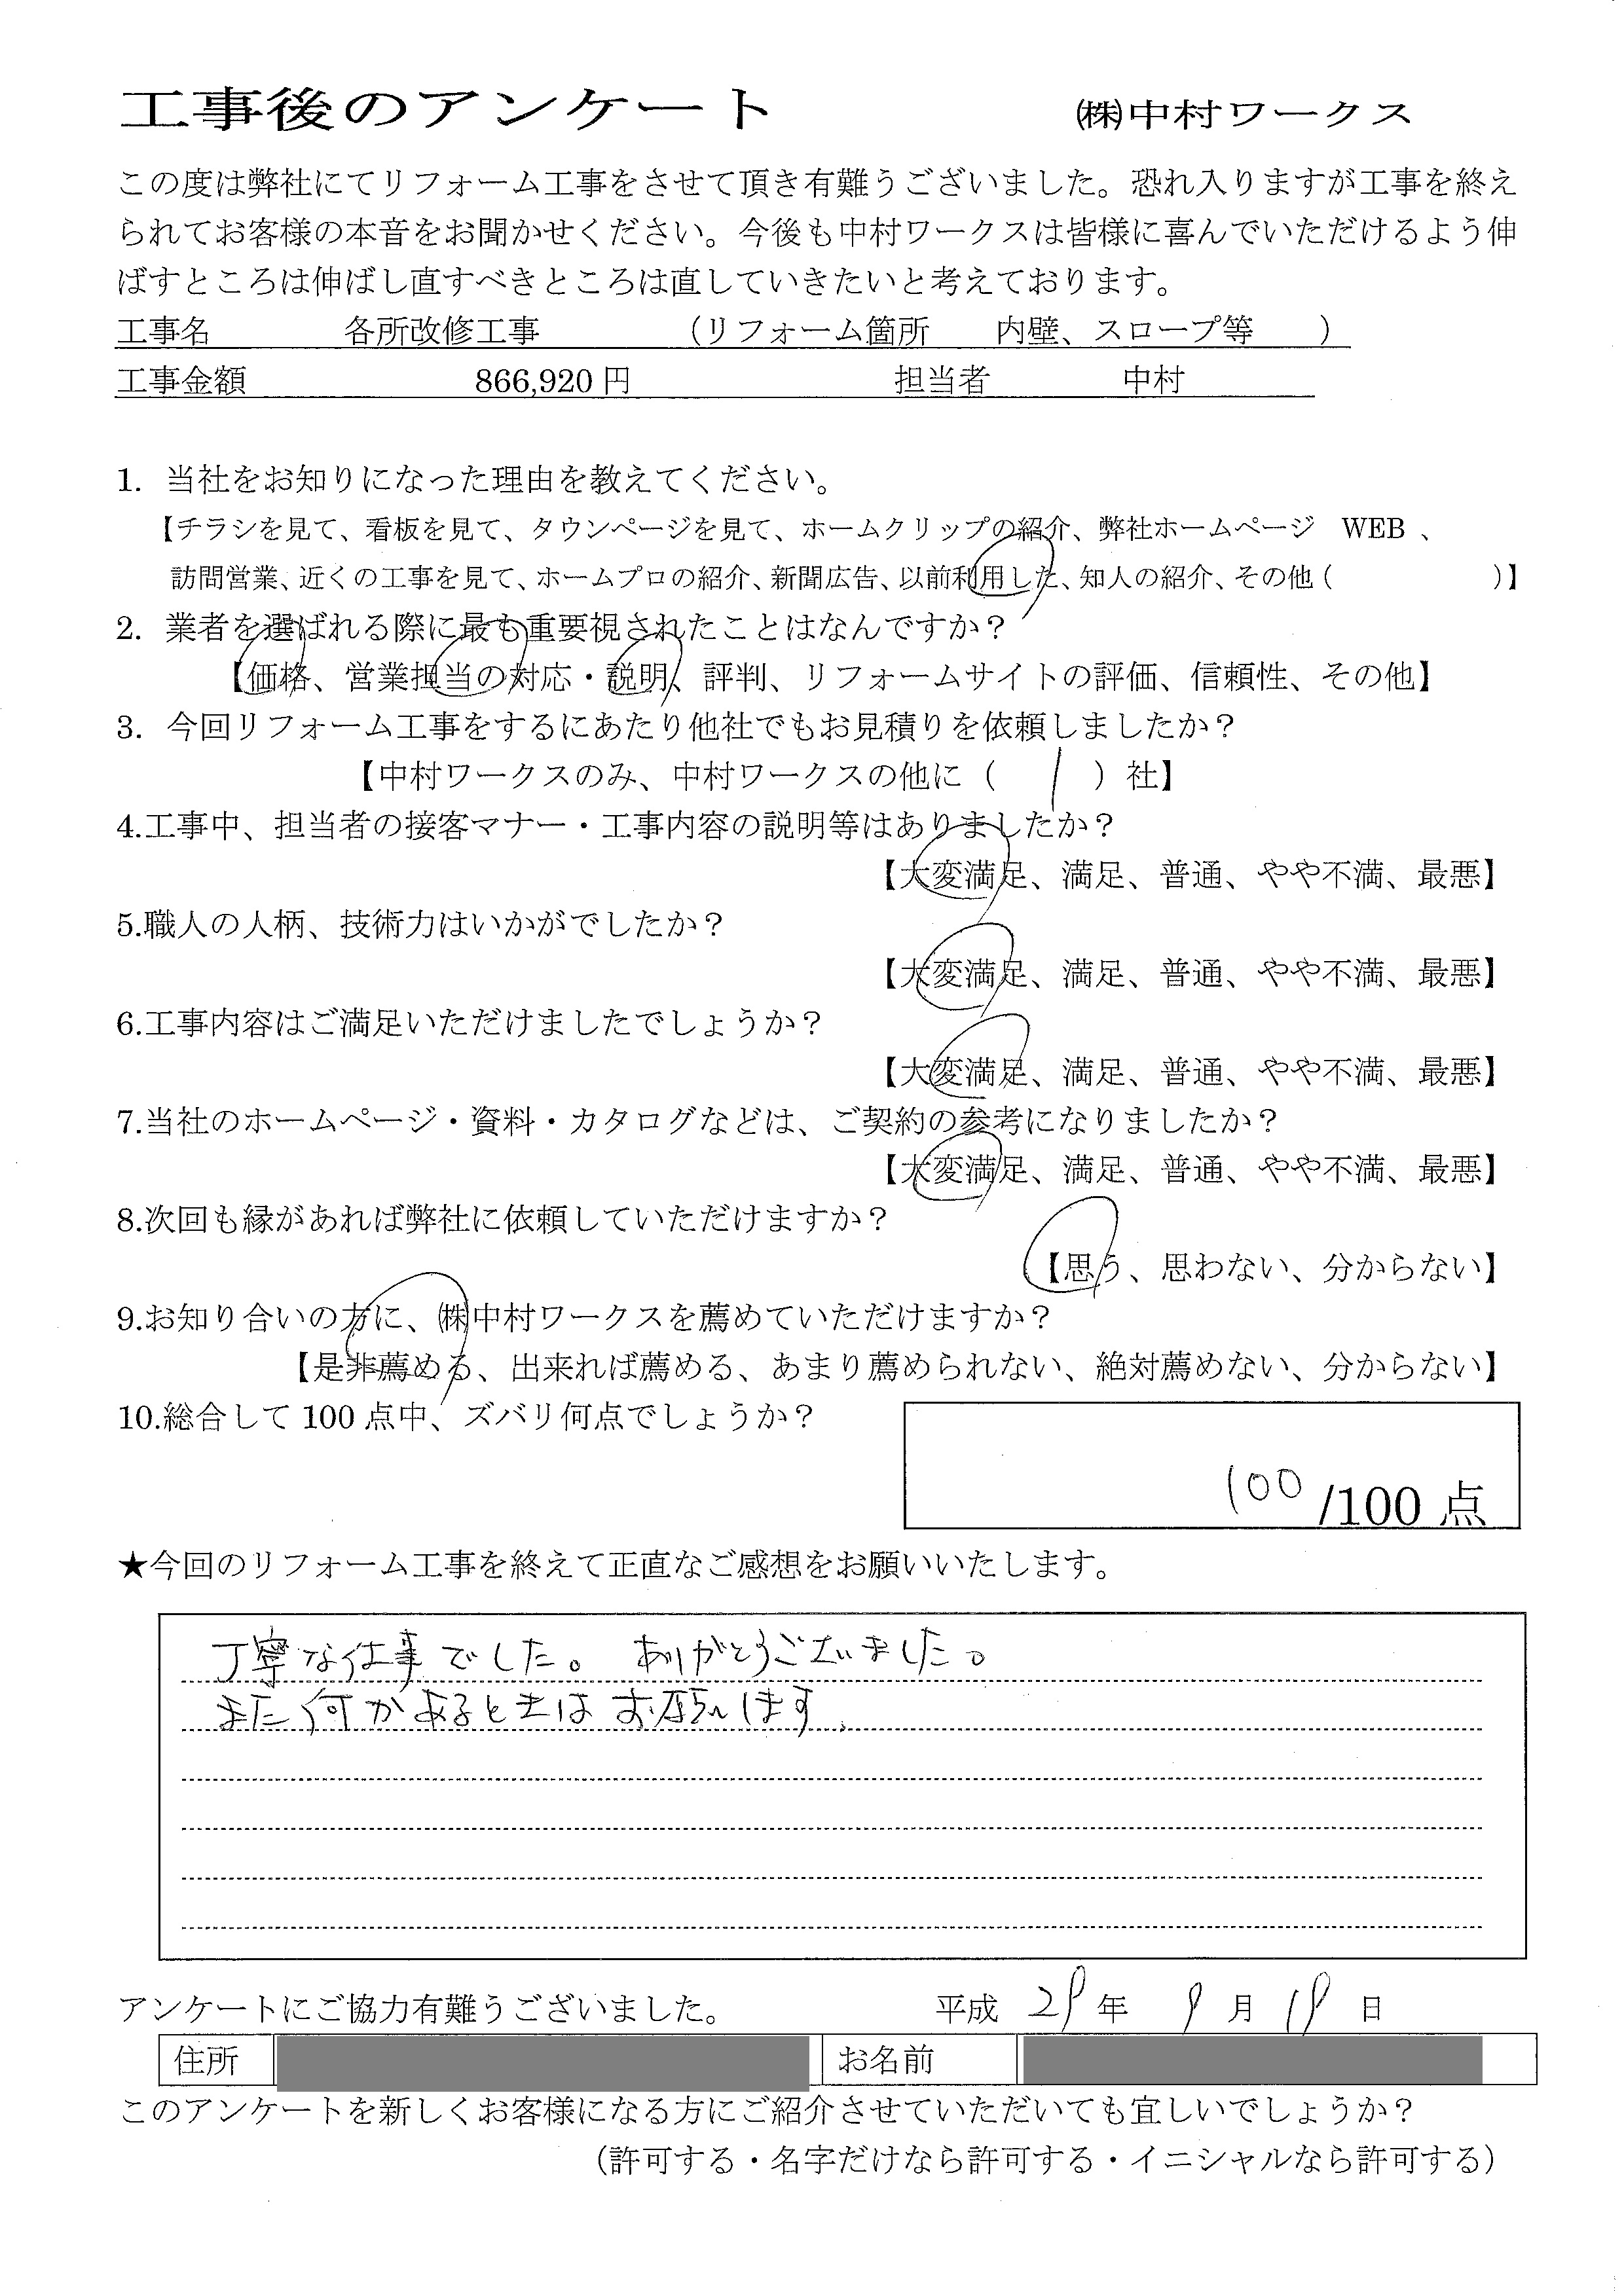 工事後のアンケート ㈱中村ワークス
この度は弊社にてリフォーム工事をさせて頂き有難うございました。恐れ入りますが工事を終え
られてお客様の本音をお聞かせください。今後も中村ワークスは皆様に喜んでいただけるよう伸
ばすところは伸ばし直すべきところは直していきたいと考えております。
工事名 各所改修工事 （リフォーム箇所 内壁、スロープ等 ）
工事金額 866,920 円 担当者 中村
1. 当社をお知りになった理由を教えてください。
【チラシを見て、看板を見て、タウンページを見て、ホームクリップの紹介、弊社ホームページ WEB 、
訪問営業、近くの工事を見て、ホームプロの紹介、新聞広告、以前利用した、知人の紹介、その他（ ）】
2. 業者を選ばれる際に最も重要視されたことはなんですか？
【価格、営業担当の対応・説明、評判、リフォームサイトの評価、信頼性、その他】
3. 今回リフォーム工事をするにあたり他社でもお見積りを依頼しましたか？
【中村ワークスのみ、中村ワークスの他に（ 1 ）社】
4.工事中、担当者の接客マナー・工事内容の説明等はありましたか？
【大変満足、満足、普通、やや不満、最悪】
5.職人の人柄、技術力はいかがでしたか？
【大変満足、満足、普通、やや不満、最悪】
6.工事内容はご満足いただけましたでしょうか？
【大変満足、満足、普通、やや不満、最悪】
7.当社のホームページ・資料・カタログなどは、ご契約の参考になりましたか？
【大変満足、満足、普通、やや不満、最悪】
8.次回も縁があれば弊社に依頼していただけますか？
【思う、思わない、分からない】
9.お知り合いの方に、㈱中村ワークスを薦めていただけますか？
【是非薦める、出来れば薦める、あまり薦められない、絶対薦めない、分からない】
10.総合して 100 点中、ズバリ何点でしょうか？
100 /100 点
★今回のリフォーム工事を終えて正直なご感想をお願いいたします。
丁寧な仕事でした。ありがとうございました。
また何かあるときはお願いします.
アンケートにご協力有難うございました。 平成 29 年 9 月 19 日
住所 お名前
このアンケートを新しくお客様になる方にご紹介させていただいても宜しいでしょうか？
（許可する・名字だけなら許可する・イニシャルなら許可する）